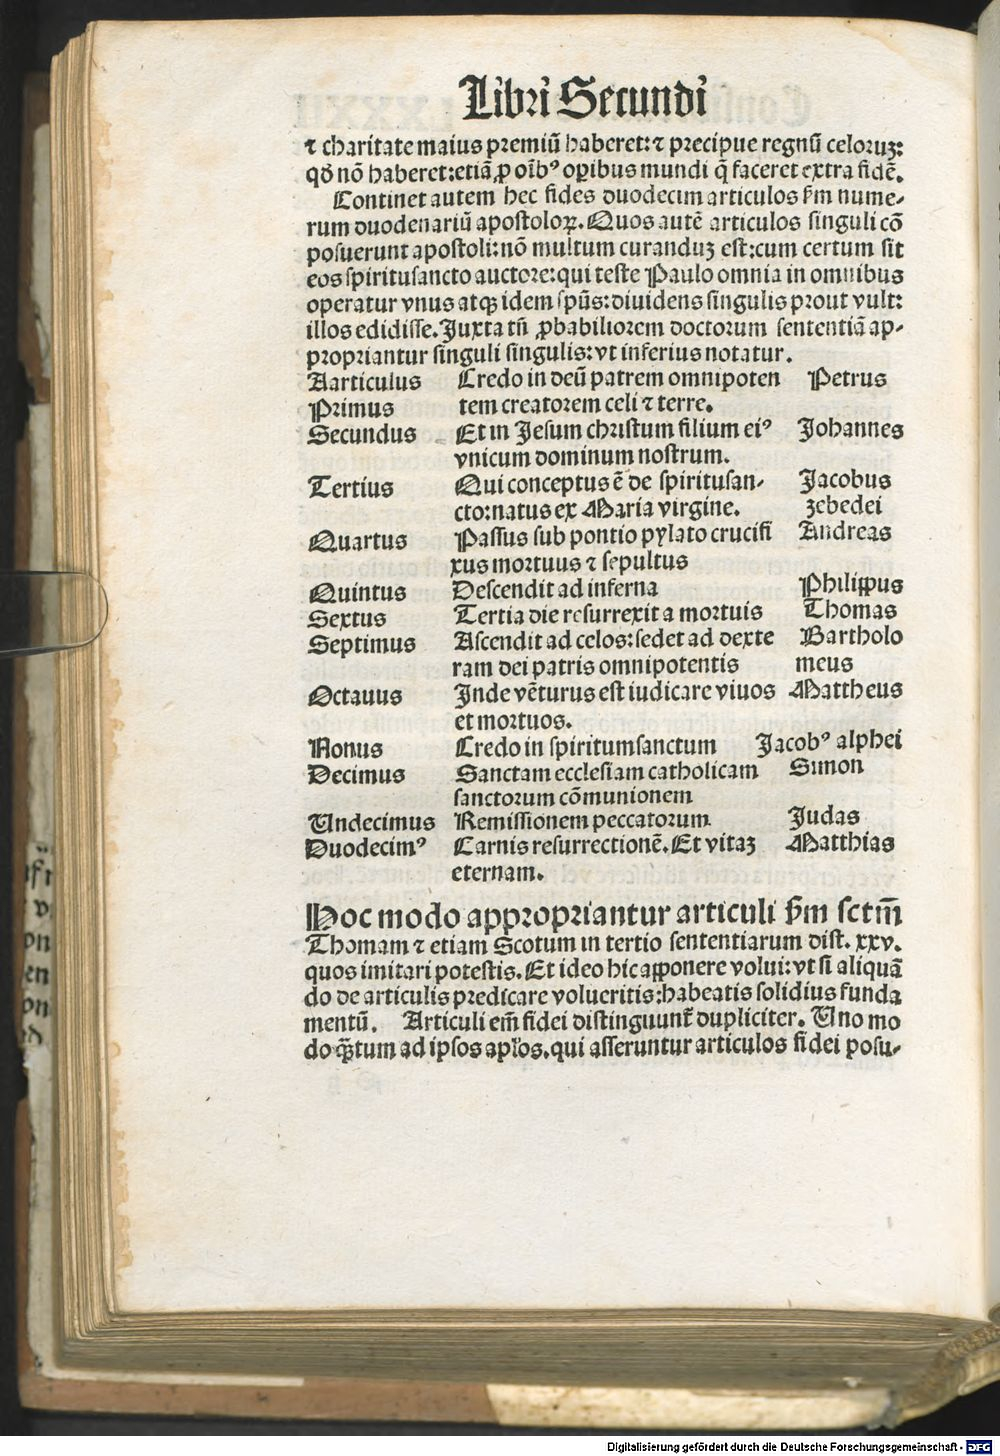 Libri Secundi
⁊ charitate maius premiū haberet: ⁊ precipue regnū celoruꝫ:
qđ nō haberet: etiā ꝓ oībꝰ oꝑibus mundi q̄ faceret extra fidē.
Continet autem hec fides duodecim articulos ẜm nume-
rum duodenariū apostoloꝝ. Quos autē articulos singuli cō
posuerunt apostoli: nō multum curanduꝫ est: cum certum sit
eos spiritusancto auctore: qui teste Paulo omnia in omnibus
operatur vnus atqꝫ idem spūs: diuidens singulis prout vult:
illos edidisse. Juxta tn̄ ꝓbabiliorem doctorum sententiā ap-
propriantur singuli singulis: vt inferius notatur.
Aarticulus Credo in deū patrem omnipoten Petrus
Primus tem creatorem celi ⁊ terre.
Secundus Et in Jesum christum filium eiꝰ Johannes
vnicum dominum nostrum.
Tertius Qui conceptus ē de spiritusan- Jacobus
cto: natus ex Maria virgine. zebedei
Quartus Passus sub pontio pylato crucifi Andreas
xus mortuus ⁊ sepultus
Quintus Descendit ad inferna Philippus
Sextus Tertia die resurrexit a mortuis Thomas
Septimus Ascendit ad celos: sedet ad dexte Bartholo
ram dei patris omnipotentis meus
Octauus Inde vēturus est iudicare viuos Mattheus
et mortuos.
Nonus Credo in spiritumsanctum Jacobꝰ alphei
Decimus Sanctam ecclesiam catholicam Simon
sanctorum cōmunionem
Undecimus Remissionem peccatorum Judas
Duodecimꝰ Carnis resurrectionē. Et vitaꝫ Matthias
eternam.
Hoc modo appropriantur articuli ẜm sctm̄
Thomam ⁊ etiam Scotum in tertio sententiarum dist. xxv.
quos imitari potestis. Et ideo hic apponere volui: vt si aliquā
do de articulis predicare volueritis: habeatis solidius funda
mentū. Articuli em̄ fidei distinguunt̄ dupliciter. Uno mo
do qꝫtum ad ipsos apl̄os. qui asseruntur articulos fidei posu-
Digitalisierung gefördert durch die Deutsche Forschungsgemeinschaft - DFG